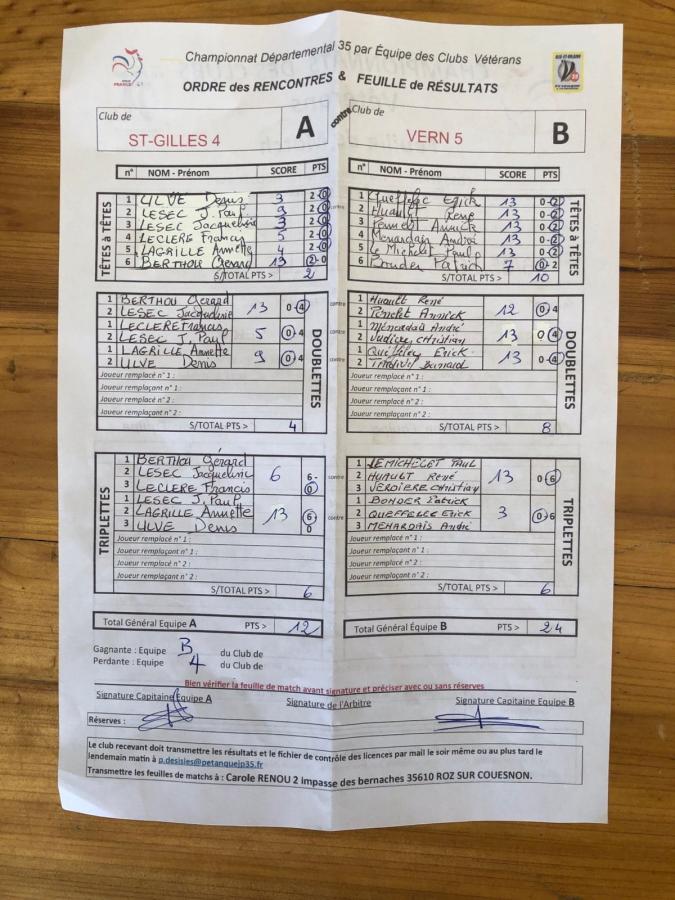 Championnat Départemental 35 par Équipe des Clubs Vétérans
ORDRE des RENCONTRES & FEUILLE de RÉSULTATS
Club de
ST-GILLES 4 A
contre
Club de
VERN 5 B
n° NOM - Prénom SCORE PTS
n° NOM - Prénom SCORE PTS
TÊTES à TÊTES
1 ULVE Denis 3 2-0
2 LESEC J. Paul 9 2-0
3 LESEC Jacqueline 3 2-0
4 LECLERE Francis 5 2-0
5 LAGRILLE Annette 4 2-0
6 BERTHOU Gérard 13 2-0
S/TOTAL PTS > 2
1 Queffelec Erick 13 0-2
2 Huault René 13 0-2
3 Annick 13 0-2
4 Menardais André 13 0-2
5 Le Michelet Paul 13 0-2
6 Patrick 7 0-2
S/TOTAL PTS > 10
TÊTES à TÊTES
1 BERTHOU Gérard
2 LESEC Jacqueline 13 0-4
1 LECLERE Francis
2 LESEC J. Paul 5 0-4
1 LAGRILLE Annette
2 ULVE Denis 9 0-4
Joueur remplacé n° 1 :
Joueur remplaçant n° 1 :
Joueur remplacé n° 2 :
Joueur remplaçant n° 2 :
S/TOTAL PTS > 4
DOUBLETTES
contre
contre
contre
1 Huault René
2 Annick 12 0-4
1 André
2 Christian 13 0-4
1 Erick
2 13 0-4
Joueur remplacé n° 1 :
Joueur remplaçant n° 1 :
Joueur remplacé n° 2 :
Joueur remplaçant n° 2 :
S/TOTAL PTS > 8
DOUBLETTES
TRIPLETTES
1 BERTHOU Gérard
2 LESEC Jacqueline 6 6-0
3 LECLERE Francis
1 LESEC J. Paul
2 LAGRILLE Annette 13 6-0
3 ULVE Denis
Joueur remplacé n° 1 :
Joueur remplaçant n° 1 :
Joueur remplacé n° 2 :
Joueur remplaçant n° 2 :
S/TOTAL PTS > 6
contre
contre
1 LEMICHELET PAUL
2 HUAULT René 13 0-6
3 VERDIERE Christian
1 Patrick
2 QUEFFELEC Erick 3 0-6
3 MENARDAIS André
Joueur remplacé n° 1 :
Joueur remplaçant n° 1 :
Joueur remplacé n° 2 :
Joueur remplaçant n° 2 :
S/TOTAL PTS > 6
TRIPLETTES
Total Général Equipe A PTS > 12
Total Général Équipe B PTS > 24
Gagnante : Equipe B du Club de
Perdante : Equipe A du Club de
Bien vérifier la feuille de match avant signature et préciser avec ou sans réserves
Signature Capitaine Equipe A Signature de l'Arbitre Signature Capitaine Equipe B
Réserves :
Le club recevant doit transmettre les résultats et le fichier de contrôle des licences par mail le soir même ou au plus tard le
lendemain matin à p.desisles@petanquejp35.fr
Transmettre les feuilles de matchs à : Carole RENOU 2 impasse des bernaches 35610 ROZ SUR COUESNON.